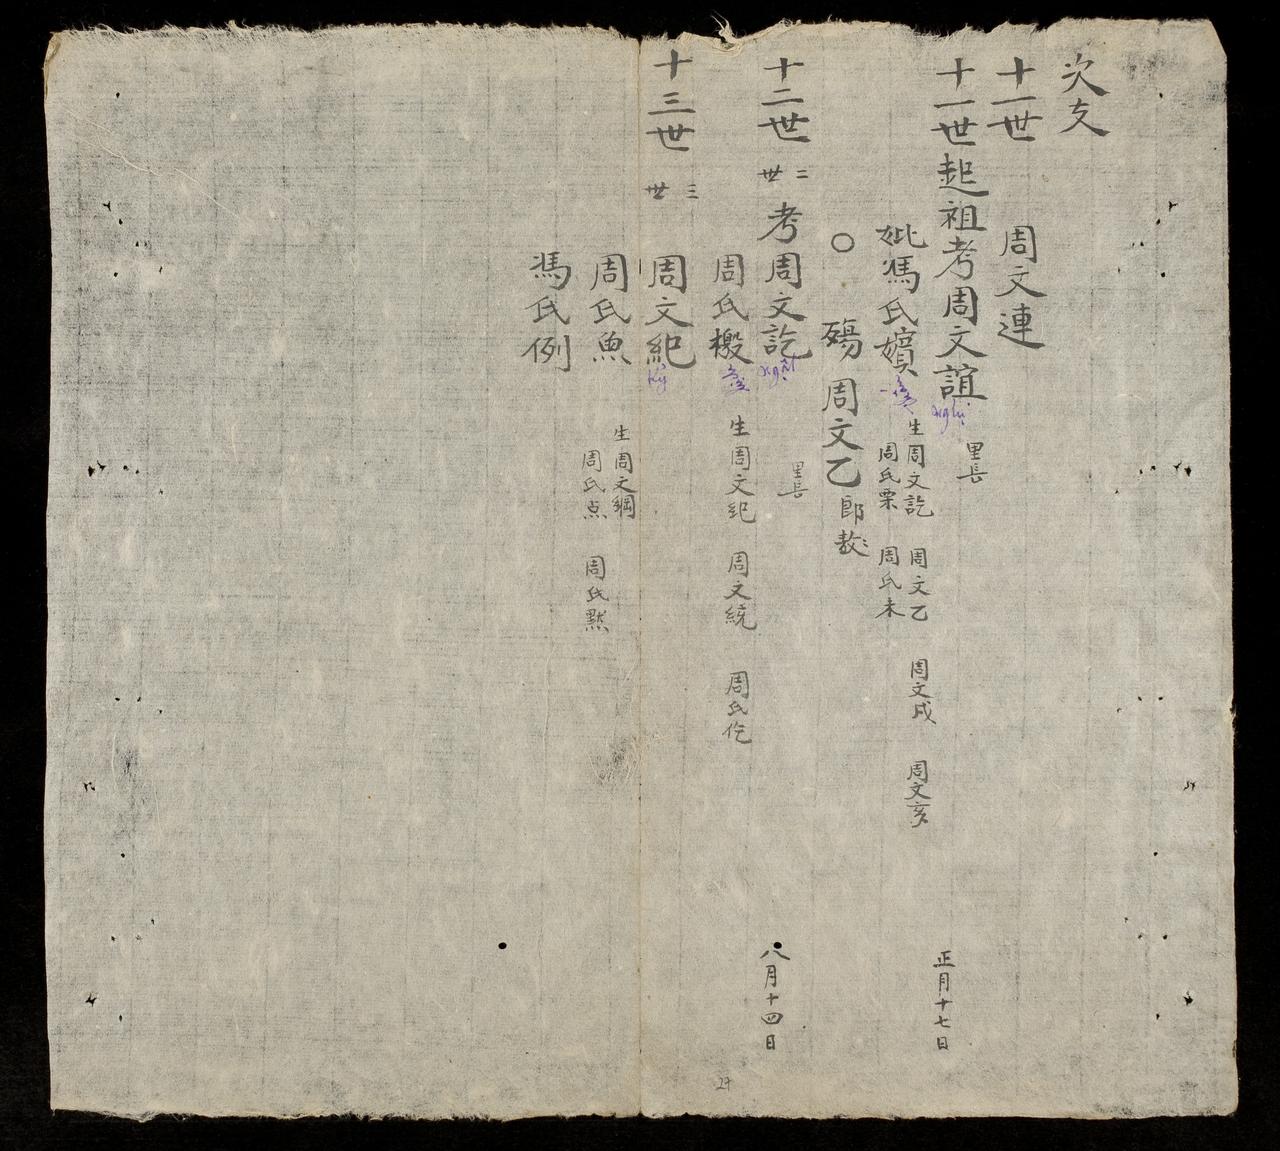 次支
十一世 周文連
十一世起祖考周文誼 nghị 里長 正月十七日
妣馮氏嬪 生周文訖 周文乙 周文戌 周文亥
周氏栗 周氏未
○ 殤 周文乙 郎敖〻
十二世 二世 考周文訖 ngật 里長 八月十四日
周氏檓 生周文紀 周文統 周氏仡
十三世 三世 周文紀 kỷ
周氏魚 生周文綱
周氏点 周氏黙
馮氏例
27